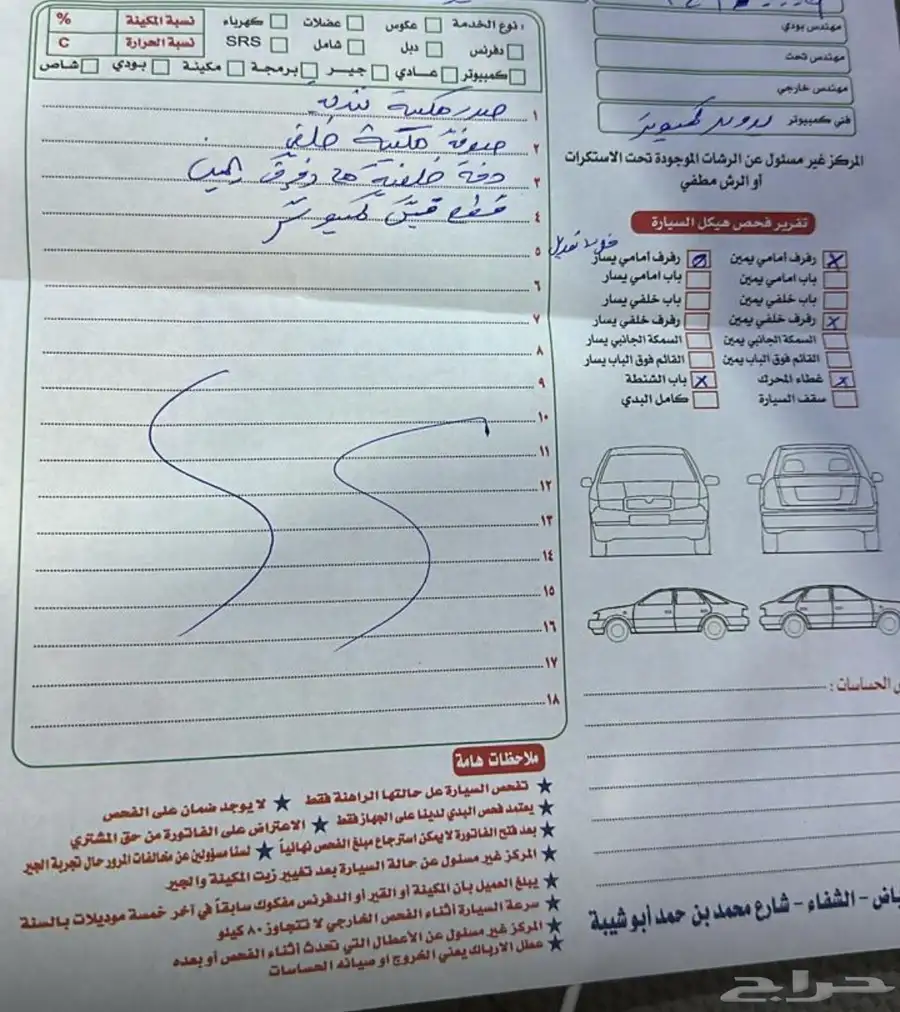 نوع الخدمة : عكوس عضلات كهرباء
دفرنس دبل شامل SRS
كمبيوتر عادي جيــر برمجة مكينة بودي شاص
نسبة المكينة %
نسبة الحرارة C
١ صدر مكينة
٢ مكينة خلفي
٣ خلفية
٤ كمبيوتر
٥
٦
٧
٨
٩
١٠
١١
١٢
١٣
١٤
١٥
١٦
١٧
١٨
مهندس بودي
مهندس تحت
مهندس خارجي
فني كمبيوتر بدون كمبيوتر
المركز غير مسئول عن الرشات الموجودة تحت الاستكرات
أو الرش مطفي
تقرير فحص هيكل السيارة
رفرف أمامي يمين رفرف أمامي يسار
باب امامي يمين باب امامي يسار
باب خلفي يمين باب خلفي يسار
رفرف خلفي يمين رفرف خلفي يسار
السمكة الجانبي يمين السمكة الجانبي يسار
القائم فوق الباب يمين القائم فوق الباب يسار
غطاء المحرك باب الشنطة
سقف السيارة كامل البدي
الحساسات :
ملاحظات هامة
★ تفحص السيارة عل حالتها الراهنة فقط ★ لا يوجد ضمان على الفحص
★ يعتمد فحص البدي لدينا على الجهاز فقط ★ الاعتراض على الفاتورة من حق المشتري
★ بعد فتح الفاتورة لا يمكن استرجاع مبلغ الفحص نهائياً ★ لسنا مسؤولين عن مخالفات المرور حال تجربة الجير
★ المركز غير مسئول عن حالة السيارة بعد تغيير زيت المكينة والجير
★ يبلغ العميل بان المكينة أو القير أو الدفرنس مفكوك سابقاً في آخر خمسة موديلات بالسنة
★ سرعة السيارة أثناء الفحص الخارجي لا تتجاوز ٨٠ كيلو
★ المركز غير مسئول عن الأعطال التي تحدث أثناء الفحص أو بعده
★ عطل الارباك يعني الخروج أو صيانه الحساسات
الشفاء - شارع محمد بن حمد أبو شيبة
حراج